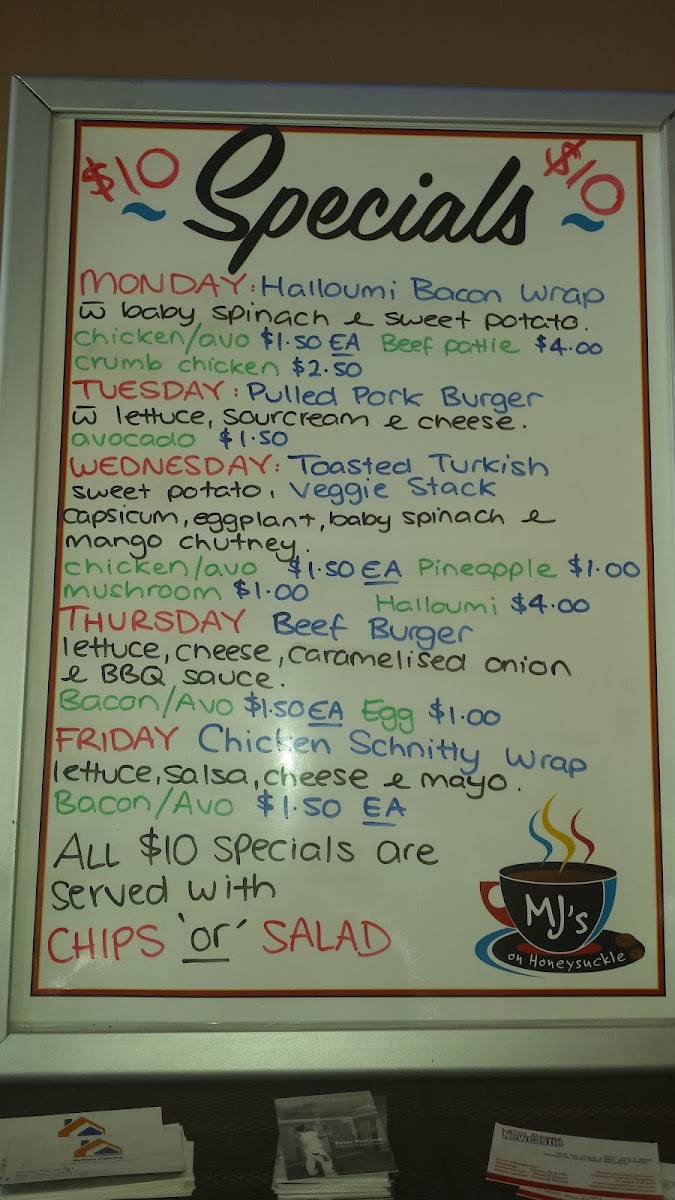 $10 Specials $10
MONDAY: Halloumi Bacon Wrap
w̄ baby spinach & sweet potato.
chicken/avo $1.50 EA Beef pattie $4.00
crumb chicken $2.50
TUESDAY: Pulled Pork Burger
w̄ lettuce, sourcream & cheese.
avocado $1.50
WEDNESDAY: Toasted Turkish
sweet potato, Veggie Stack
capsicum, eggplant, baby spinach &
mango chutney.
chicken/avo $1.50 EA Pineapple $1.00
mushroom $1.00 Halloumi $4.00
THURSDAY Beef Burger
lettuce, cheese, caramelised onion
& BBQ sauce.
Bacon/Avo $1.50 EA Egg $1.00
FRIDAY Chicken Schnitty Wrap
lettuce, salsa, cheese & mayo.
Bacon/Avo $1.50 EA
ALL $10 specials are
served with
CHIPS 'or' SALAD
MJ's
on Honeysuckle
Newcastle